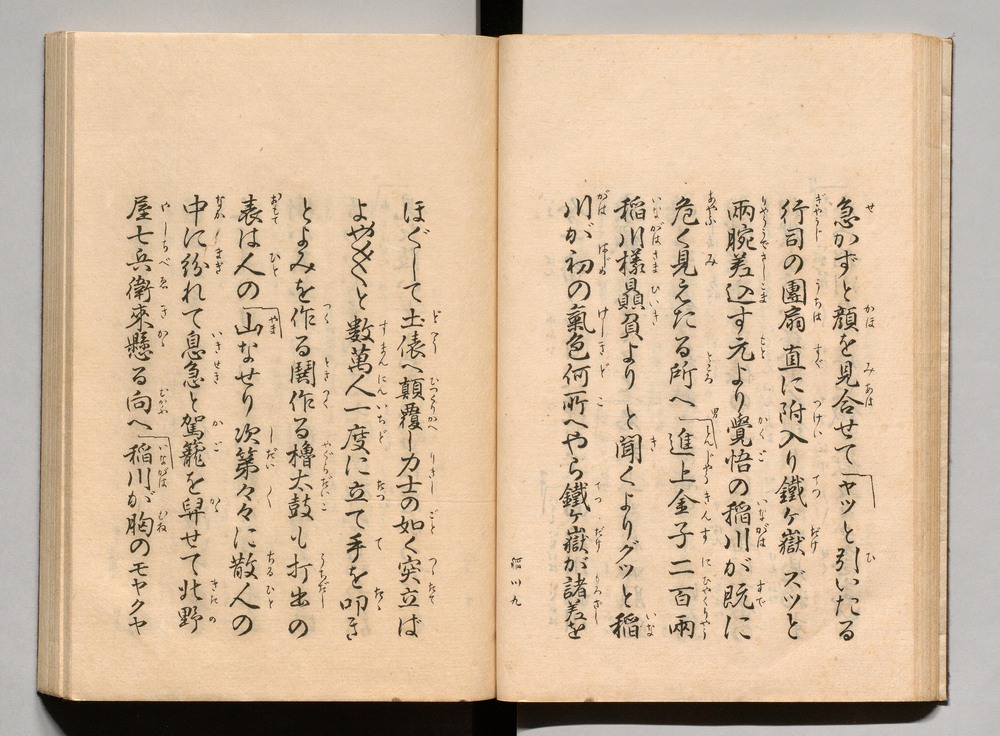 急かずと顔を見合せてヤッと引いたる
行司の團扇直に附入り鐵ヶ嶽ズッと
兩腕差込す元より覺悟の稲川が既に
危く見えたる所へ進上金子二百兩
稲川樣贔負よりと聞くよりグッと稲
川が初の氣色何所へやら鐵ヶ嶽が諸差を
稲川九
ほぐして土俵へ顛覆し力士の如く突立ば
よや〳〵〳〵と數萬人一度に立て手を叩き
とよみを作る鬨作る櫓太鼓も打出の
表は人の山なせり次第々々に散人の
中に紛れて息急と駕籠を舁せて北野
屋七兵衛來懸る向へ稲川が胸のモヤクヤ